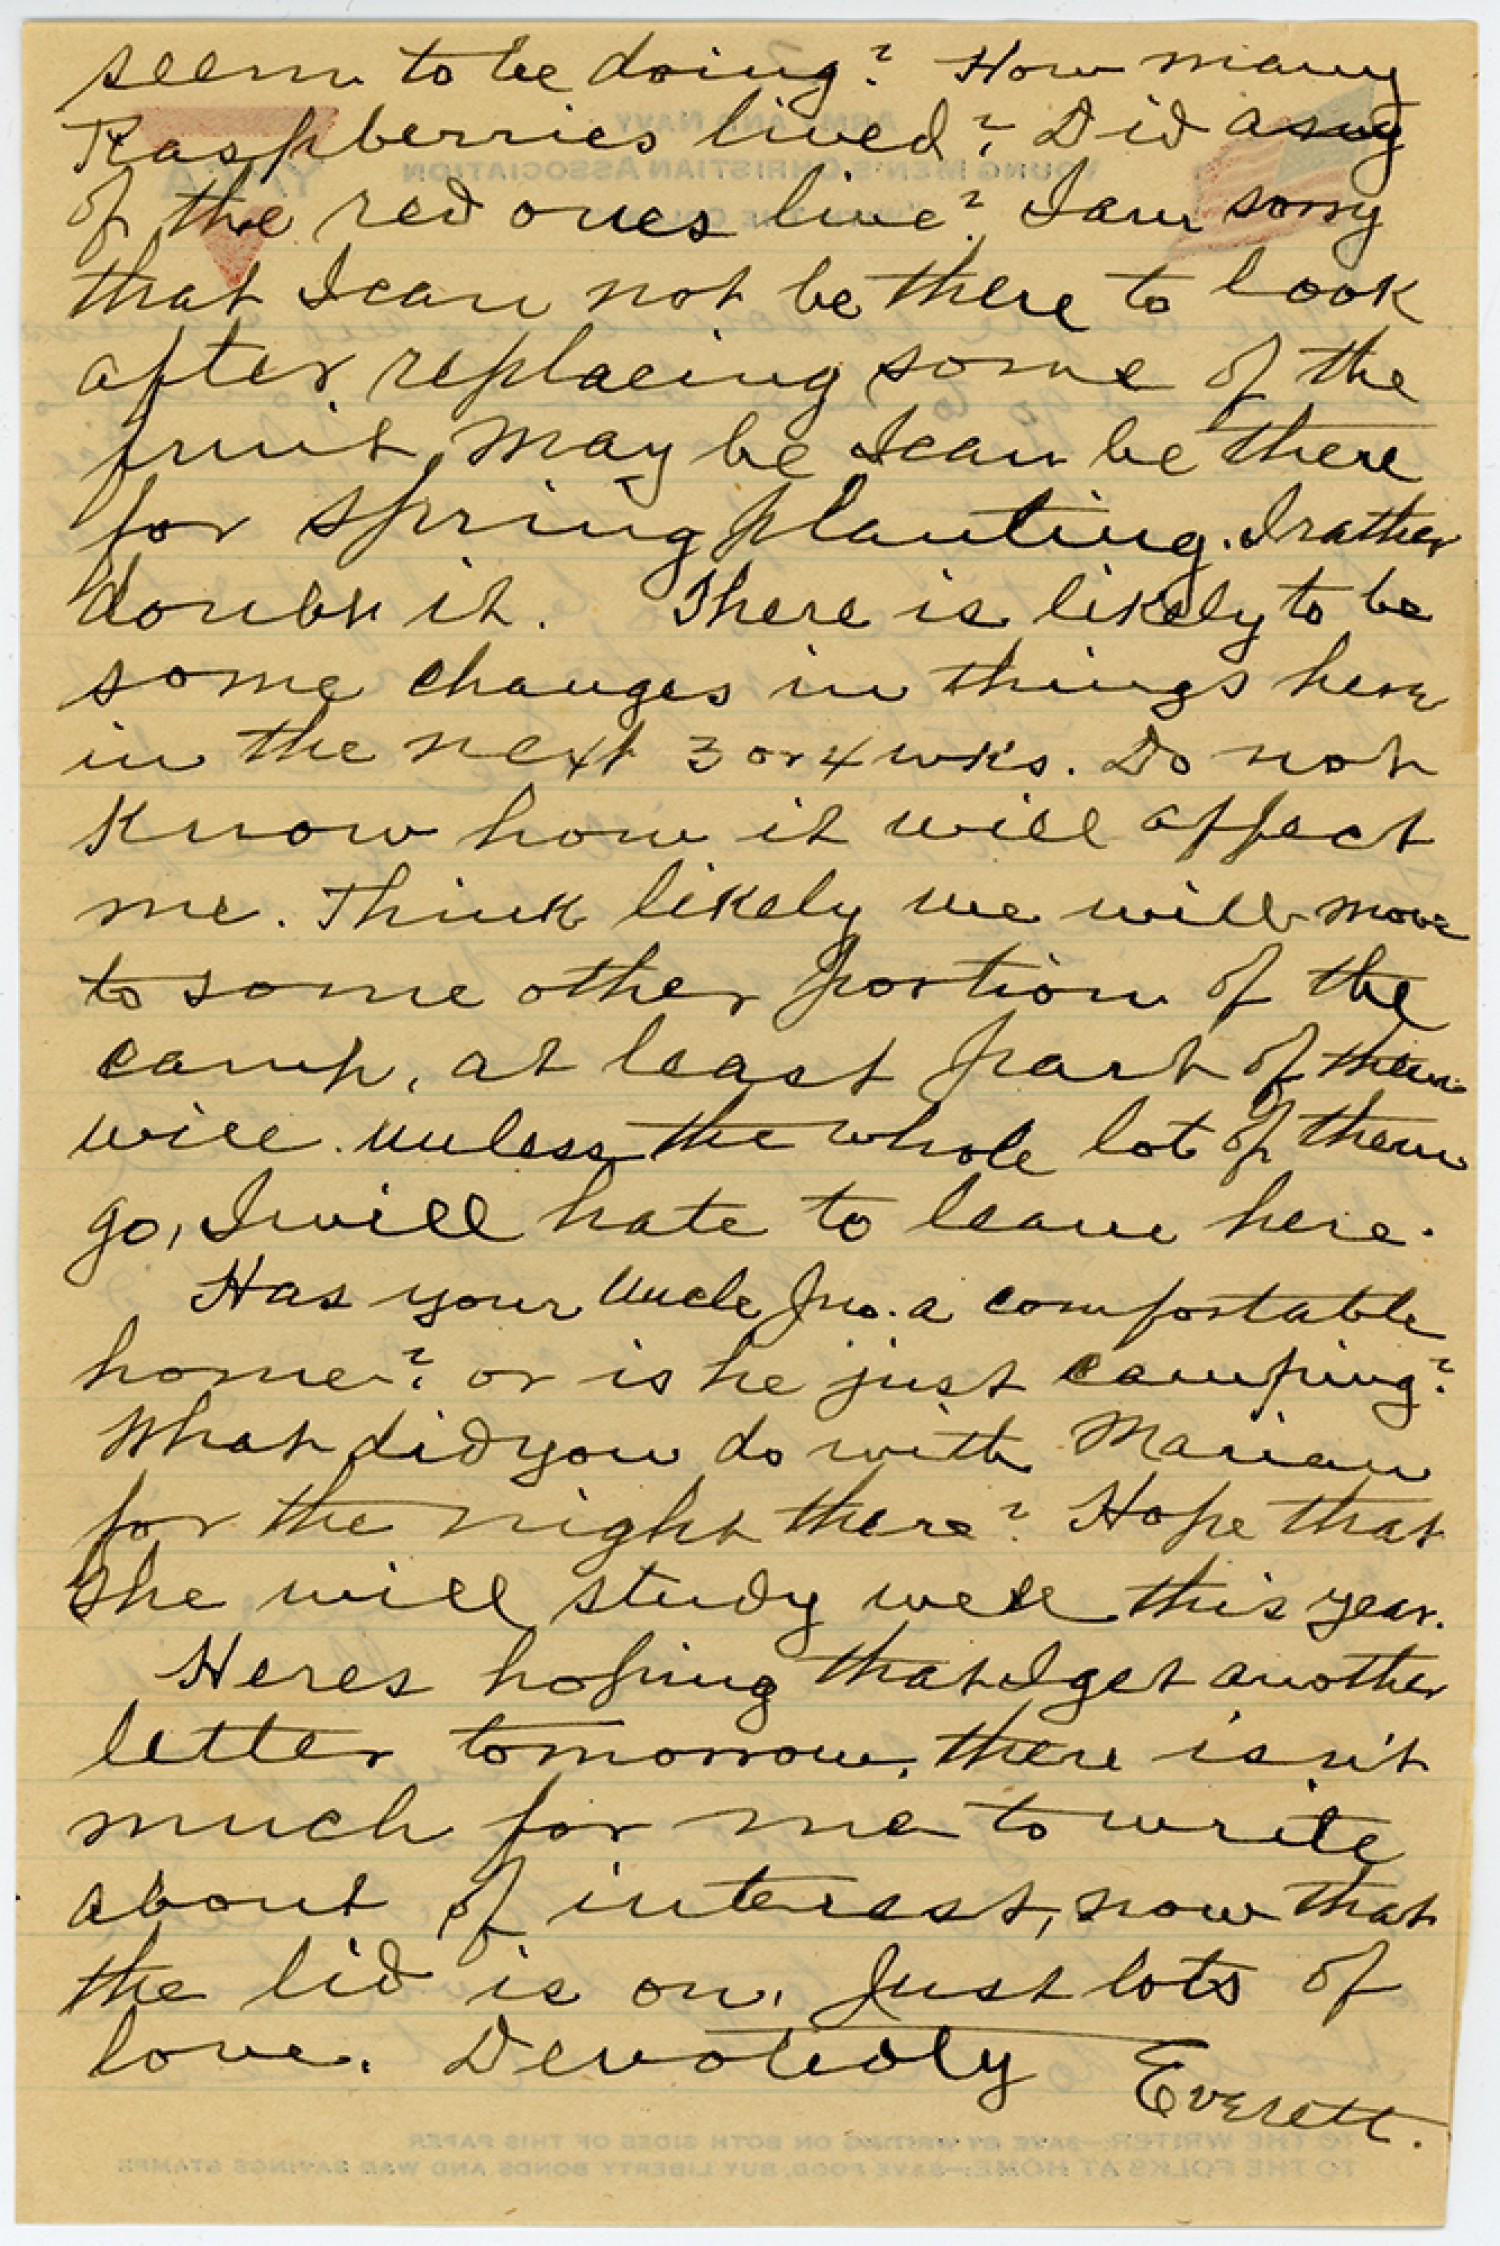 seem to be doing? How many
Raspberries lived? Did any
of the red ones live? I am sorry
that I can not be there to look
after replacing some of the
fruit, May be I can be there
for spring planting. I rather
doubt it. There is likely to be
some changes in things here
in the next 3 or 4 wks. Do not
know how it will affect
me. Think likely we will move
to some other portion of the
camp, at least part of them
will. unless the whole lot of them
go, I will hate to leave here.
Has your Uncle Jno. a comfortable
home? or is he just camping?
What did you do with Marian
for the night there? Hope that
She will study well this year.
Heres hoping that I get another
letter tomorrow. there isn't
much for me to write
about of interest, now that
the lid is on. Just lots of
love. Devotedly Everett.
TO THE WRITER:—SAVE BY WRITING ON BOTH SIDES OF THIS PAPER
TO THE FOLKS AT HOME:—SAVE FOOD, BUY LIBERTY BONDS AND WAR SAVINGS STAMPS
ARMY AND NAVY
YOUNG MEN'S CHRISTIAN ASSOCIATION
YMCA